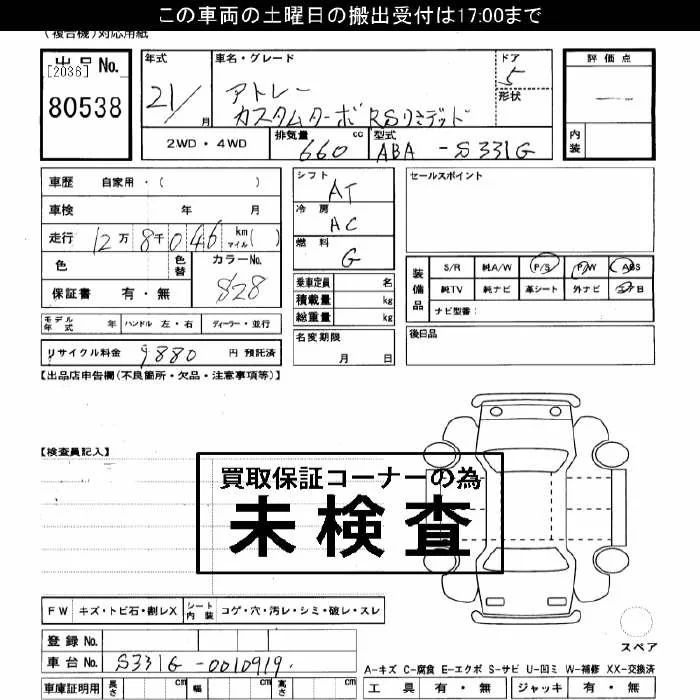 この車両の土曜日の搬出受付は17:00まで
(複合機)対応用紙
出品No.
[2036]
80538
年式
21/
月
車名・グレード
アトレー
カスタムターボRSリミテッド
ドア
5
形状
評価点
内装
2WD・4WD
排気量
660
cc
型式
ABA-S331G
車歴 自家用・( )
車検 年 月
走行 12万 8千 046 km マイル( )
色
色替
カラーNo.
S28
保証書 有・無
モデル年式 年
ハンドル 左・右
ディーラー・並行
リサイクル料金 9880 円 預託済
シフト
AT
冷房
AC
燃料
G
乗車定員 名
積載量 kg
総重量 kg
名変期限
月 日
セールスポイント
装備品
S/R 純A/W P/S P/W ABS
純TV 純ナビ 革シート 外ナビ
ナビ型番:
後日品
【出品店申告欄(不良箇所・欠品・注意事項等)】
【検査員記入】
買取保証コーナーの為
未検査
FW キズ・トビ石・割レX
シート内装 コゲ・穴・汚レ・シミ・破レ・スレ
登録No.
車台No. S331G-0010919.
車庫証明用 長さ cm 幅 cm 高さ cm
スペア
A-キズ C-腐食 E-エクボ S-サビ U-凹ミ W-補修 XX-交換済
工具 有・無 ジャッキ 有・無